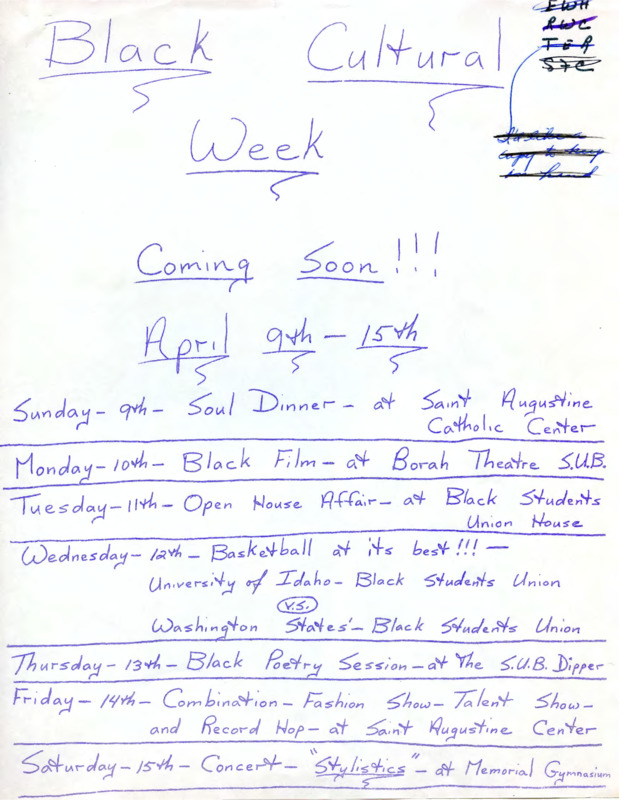 EWH
RWC
TER
STC
Black Cultural
I'd like a
copy to keep
in hand
Week
Coming Soon!!!
April 9th - 15th
Sunday - 9th - Soul Dinner - at Saint Augustine
Catholic Center
Monday - 10th - Black Film - at Borah Theatre S.U.B.
Tuesday - 11th - Open House Affair - at Black Students
Union House
Wednesday - 12th - Basketball at its best!!! -
University of Idaho - Black Students Union
V.S.
Washington States' - Black Students Union
Thursday - 13th - Black Poetry Session - at The S.U.B. Dipper
Friday - 14th - Combination - Fashion Show - Talent Show -
and Record Hop - at Saint Augustine Center
Saturday - 15th - Concert - "Stylistics" - at Memorial Gymnasium